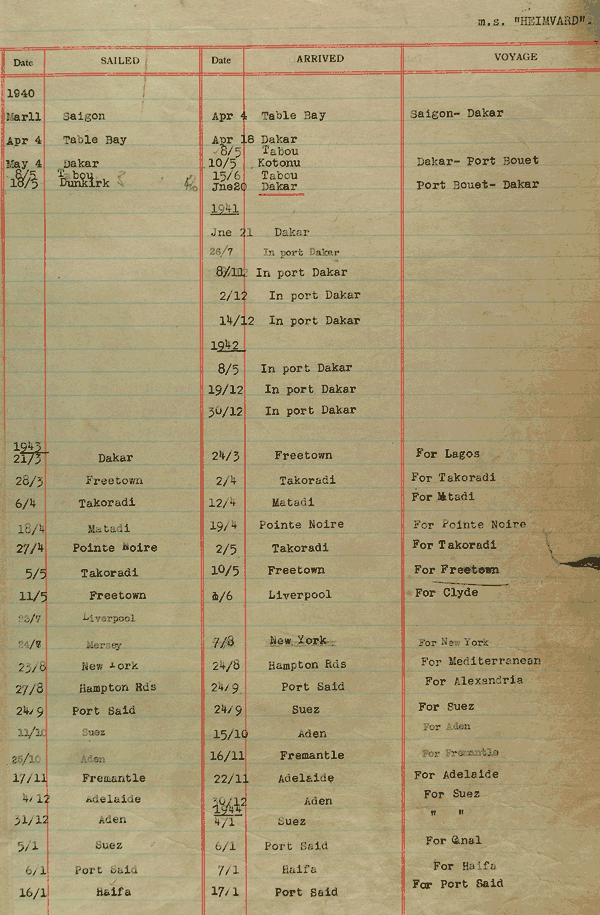 m.s. "HEIMVARD".
Date SAILED Date ARRIVED VOYAGE
1940
Mar11 Saigon Apr 4 Table Bay Saigon- Dakar
Apr 4 Table Bay Apr 18 Dakar
8/5 Tabou
May 4 Dakar 10/5 Kotonu Dakar- Port Bouet
8/5 Tabou 15/6 Tabou
18/5 Dunkirk Jne20 Dakar Port Bouet- Dakar
1941
Jne 21 Dakar
26/7 In port Dakar
8/11 In port Dakar
2/12 In port Dakar
14/12 In port Dakar
1942
8/5 In port Dakar
19/12 In port Dakar
30/12 In port Dakar
1943
21/3 Dakar 24/3 Freetown For Lagos
28/3 Freetown 2/4 Takoradi For Takoradi
6/4 Takoradi 12/4 Matadi For Matadi
18/4 Matadi 19/4 Pointe Noire For Pointe Noire
27/4 Pointe Noire 2/5 Takoradi For Takoradi
5/5 Takoradi 10/5 Freetown For Freetown
11/5 Freetown /6 Liverpool For Clyde
23/7 Liverpool
24/7 Mersey 7/8 New York For New York
23/8 New York 24/8 Hampton Rds For Mediterranean
27/8 Hampton Rds 24/9 Port Said For Alexandria
24/9 Port Said 24/9 Suez For Suez
11/10 Suez 15/10 Aden For Aden
25/10 Aden 16/11 Fremantle For Fremantle
17/11 Fremantle 22/11 Adelaide For Adelaide
4/12 Adelaide 30/12 Aden For Suez
1944
31/12 Aden 4/1 Suez " "
5/1 Suez 6/1 Port Said For Canal
6/1 Port Said 7/1 Haifa For Haifa
16/1 Haifa 17/1 Port Said For Port Said